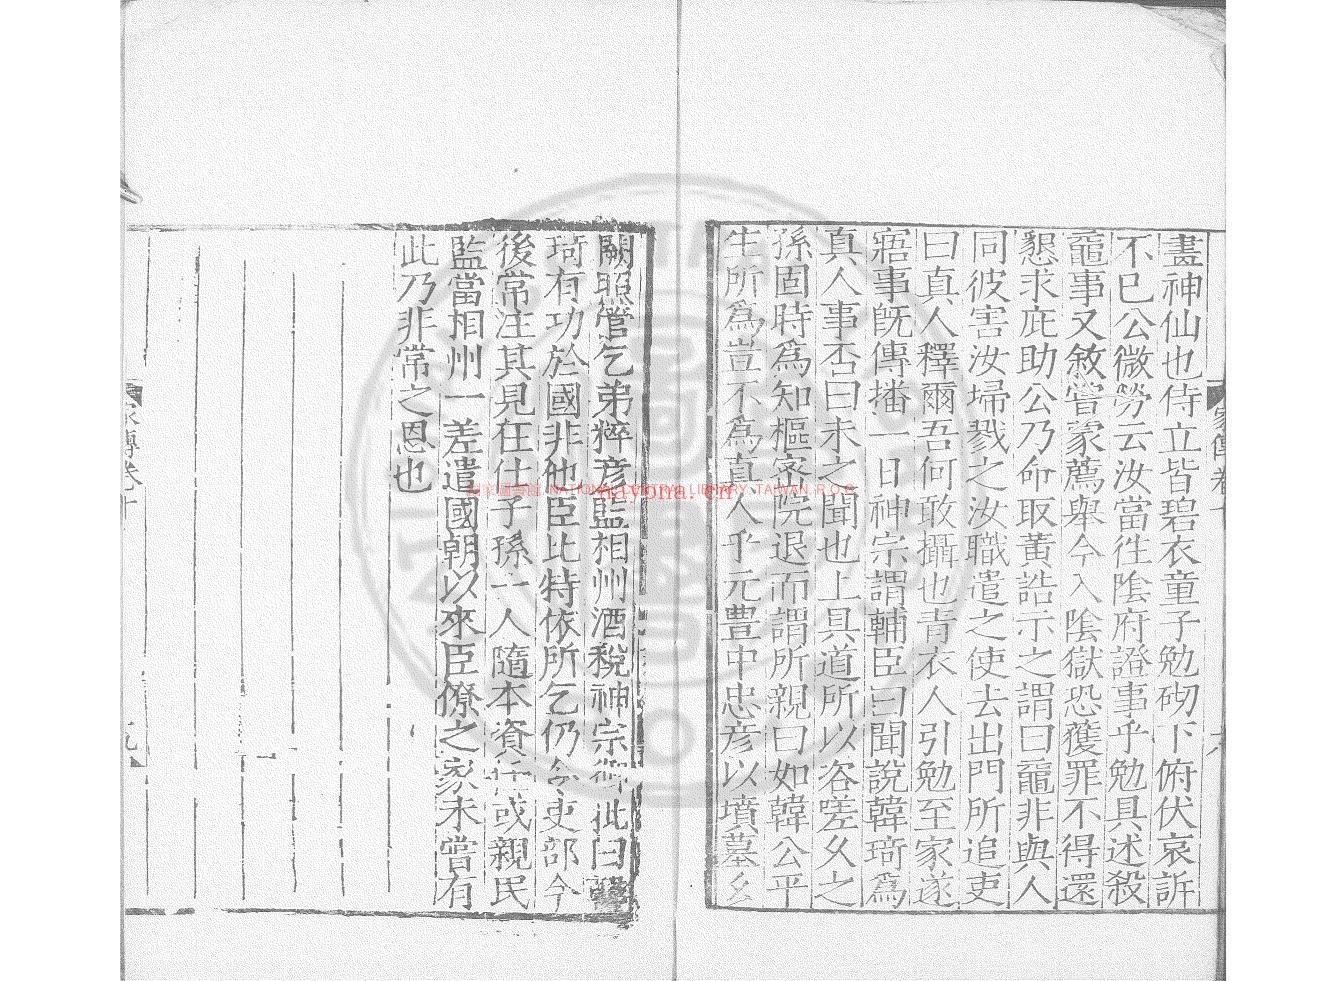 畫神仙也侍立皆碧衣童子勉砌下俯伏哀訴
不已公微勞云汝當往陰府證事乎勉具述殺
黿事又敘嘗蒙薦舉今入陰獄恐獲罪不得還
懇求庇助公乃命取黃誥示之謂曰黿非與人
同彼害汝埽戮之汝職遣之使去出門所追吏
曰真人釋爾吾何敢攝也青衣人引勉至家遂
寤事旣傳播一日神宗謂輔臣曰聞說韓琦爲
真人事否曰未之聞也上具道所以咨嗟久之
孫固時爲知樞密院退而謂所親曰如韓公平
生所爲豈不爲真人乎元豊中忠彦以墳墓乏
闕照管乞弟粹彦監相州酒稅神宗御批曰韓
琦有功於國非他臣比特依所乞仍令吏部今
後常注其見在仕子孫一人隨本資任或親民
監當相州一差遣國朝以來臣僚之家未嘗有
此乃非常之恩也
家傳卷十
九
國家圖書館 NATIONAL CENTRAL LIBRARY, TAIWAN, R.O.C
nayona.cn